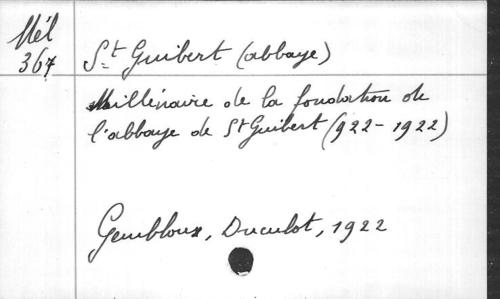 Mél
367
St Guibert (abbaye)
Millénaire de la fondation de
l'abbaye de St Guibert (922-1922)
Gembloux, Duculot, 1922